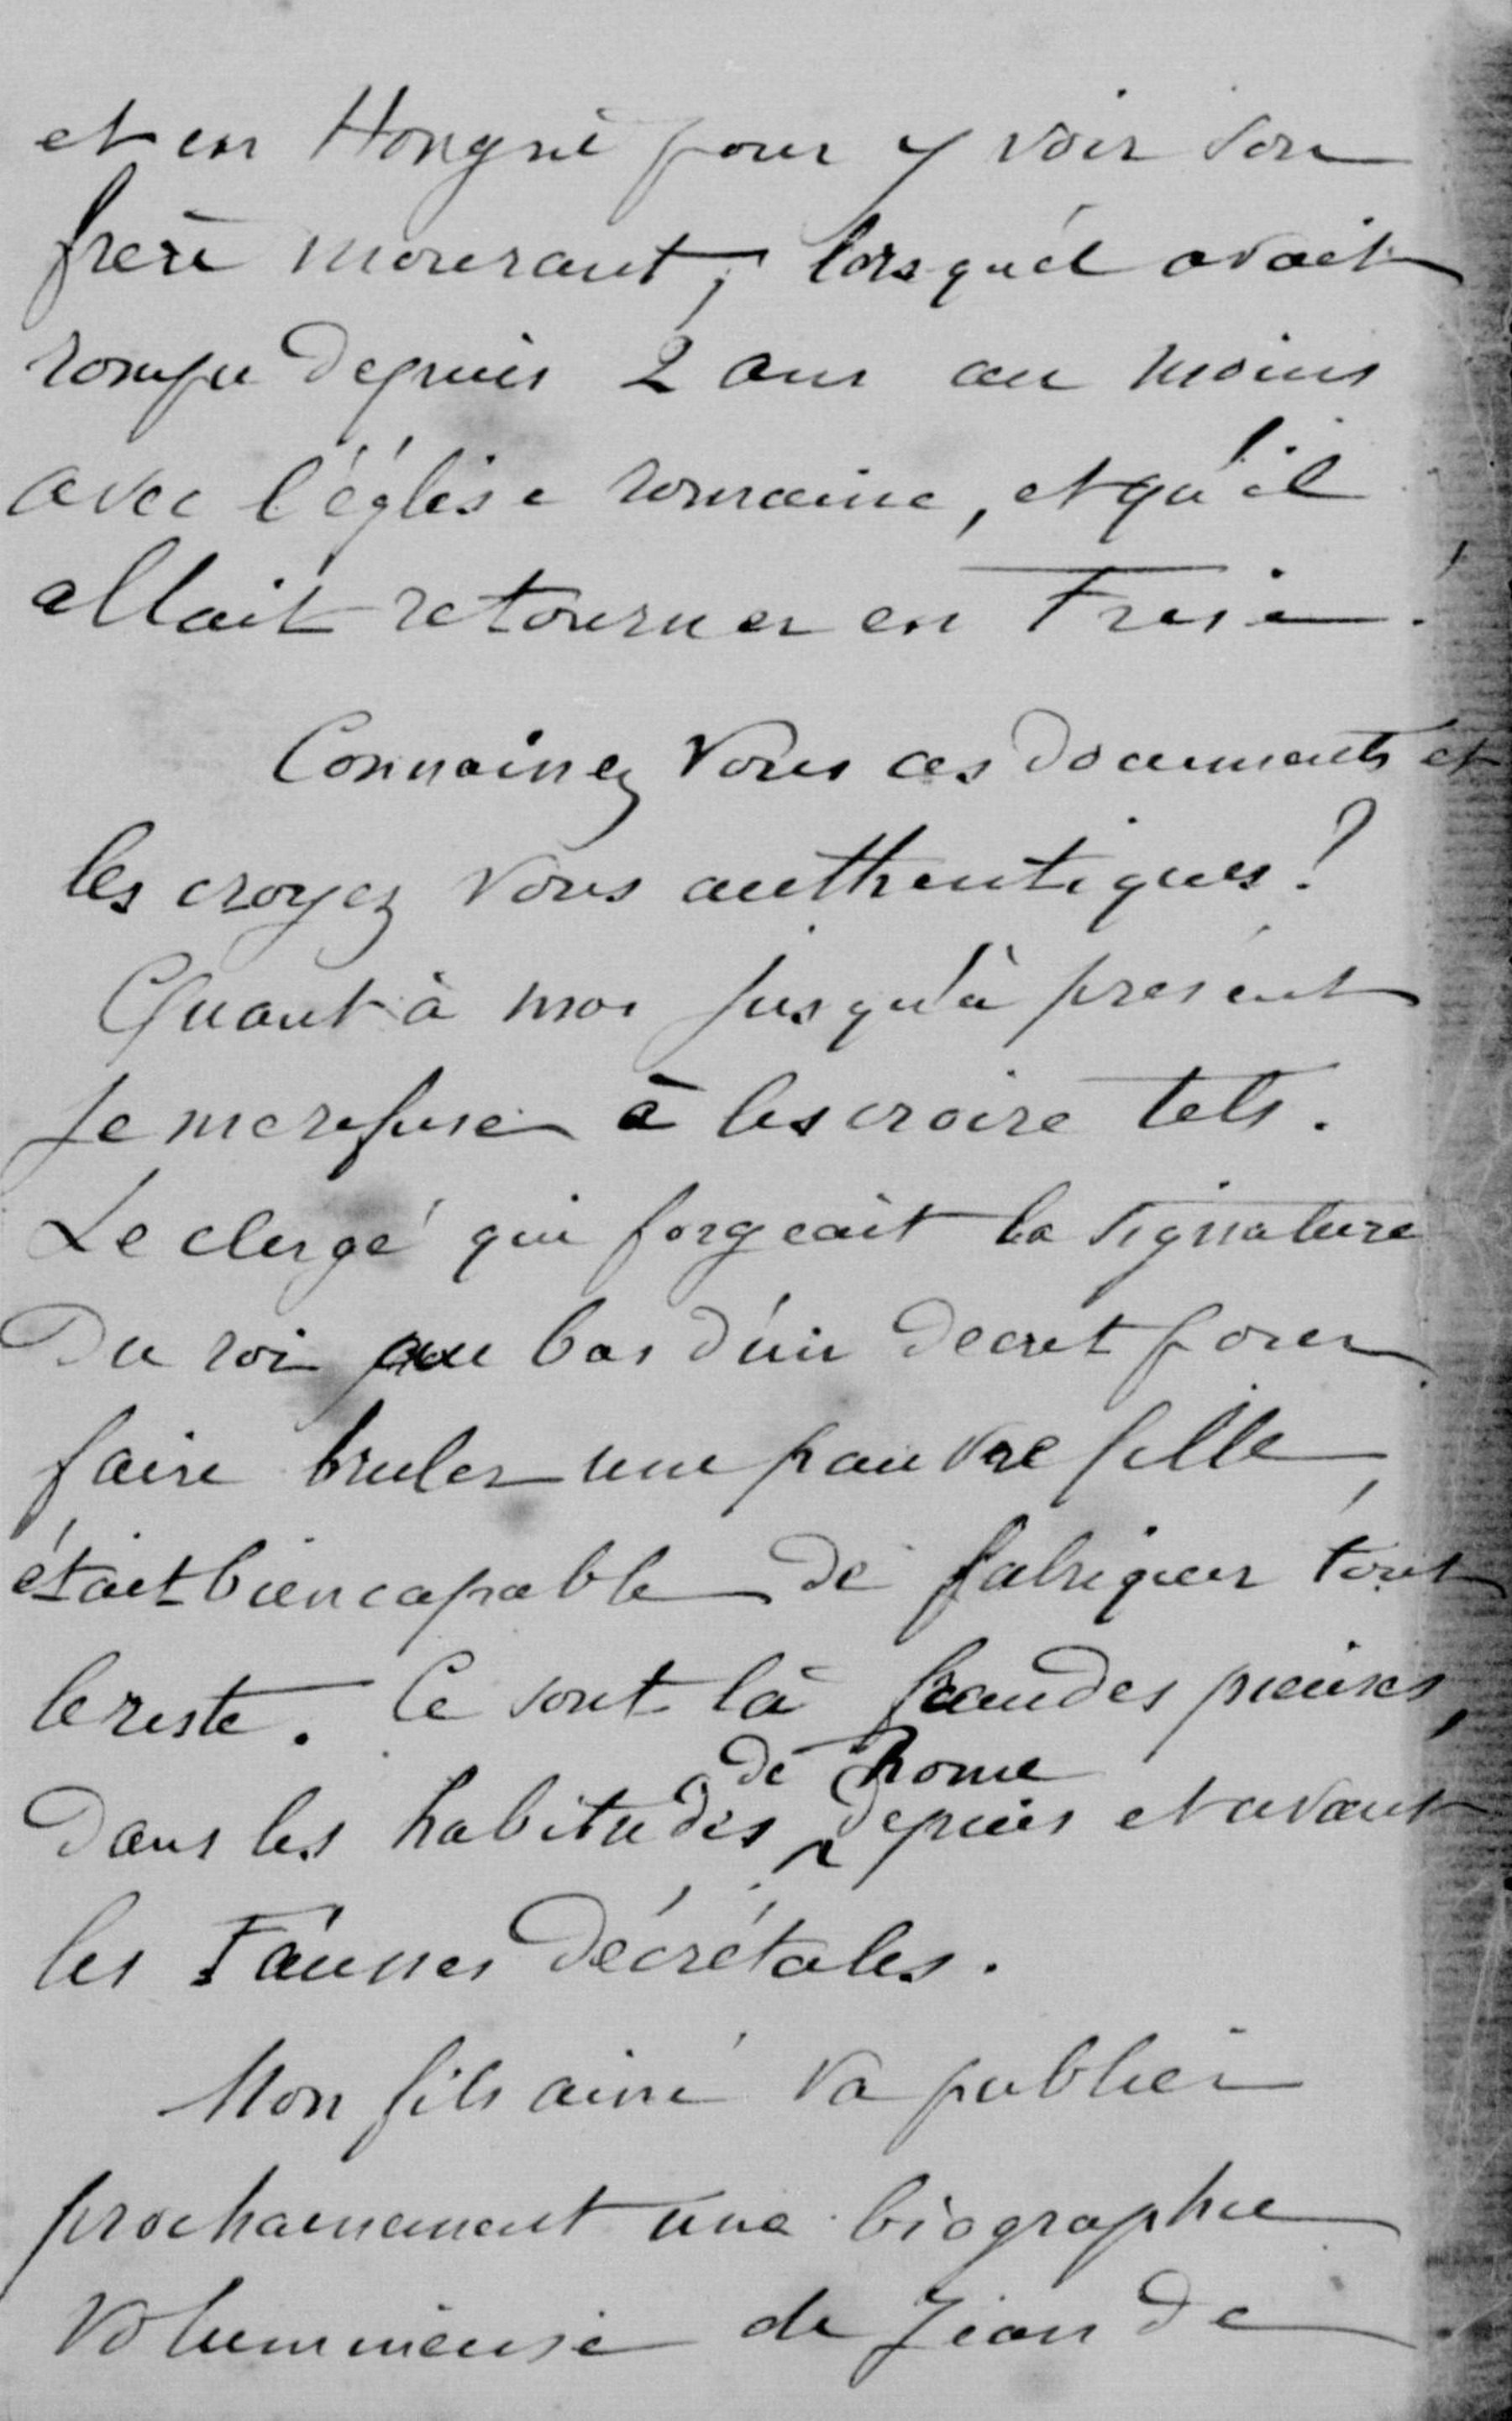 et en Hongrie pour y voir son
frère mourant, lorsqu'il avait
rompu depuis 2 ans au moins
avec l'église romaine, et qu'il
allait retourner en Frise.
Connaissez vous ces documents et
les croyez vous authentiques?
Quant à moi jusqu'à présent
je me refuse à les croire tels.
Le clergé qui forgeait la signature
du roi au bas d'un decret pour
faire bruler une pauvre fille,
était bien capable de fabriquer tout
le reste. Ce sont là fraudes pieuses,
dans les habitudes de Rome depuis et avant
les Fausses Décrétales.
Mon fils ainé va publier
prochainement une biographie
volumineuse de Jean de